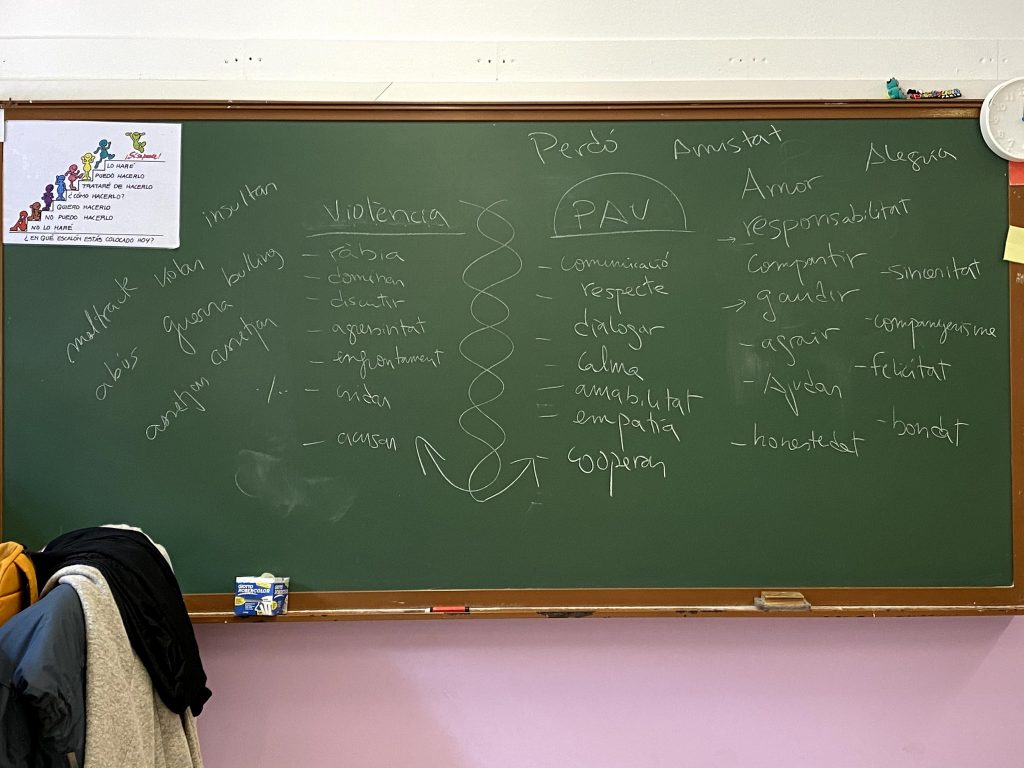 ¡Sí se puede!
LO HARÉ
PUEDO HACERLO
TRATARÉ DE HACERLO
¿CÓMO HACERLO?
QUIERO HACERLO
NO PUEDO HACERLO
NO LO HARÉ
¿EN QUÉ ESCALÓN ESTÁS COLOCADO HOY?
insultar
violar
bulling
maltractar
guerra
abús
assetjar
assetjar
Violència
- ràbia
- dominar
- discutir
- agressivitat
- enfrontament
- cridar
- acusar
Perdó
PAU
- comunicació
- respecte
- dialogar
- Calma
- amabilitat
- empatia
- cooperar
Amistat
Amor
→ responsabilitat
Compartir
→ gaudir
- agrair
- Ajudar
- honestedat
Alegria
- sinceritat
- companyerisme
- felicitat
- bondat
GIOTTO
ROBERCOLOR